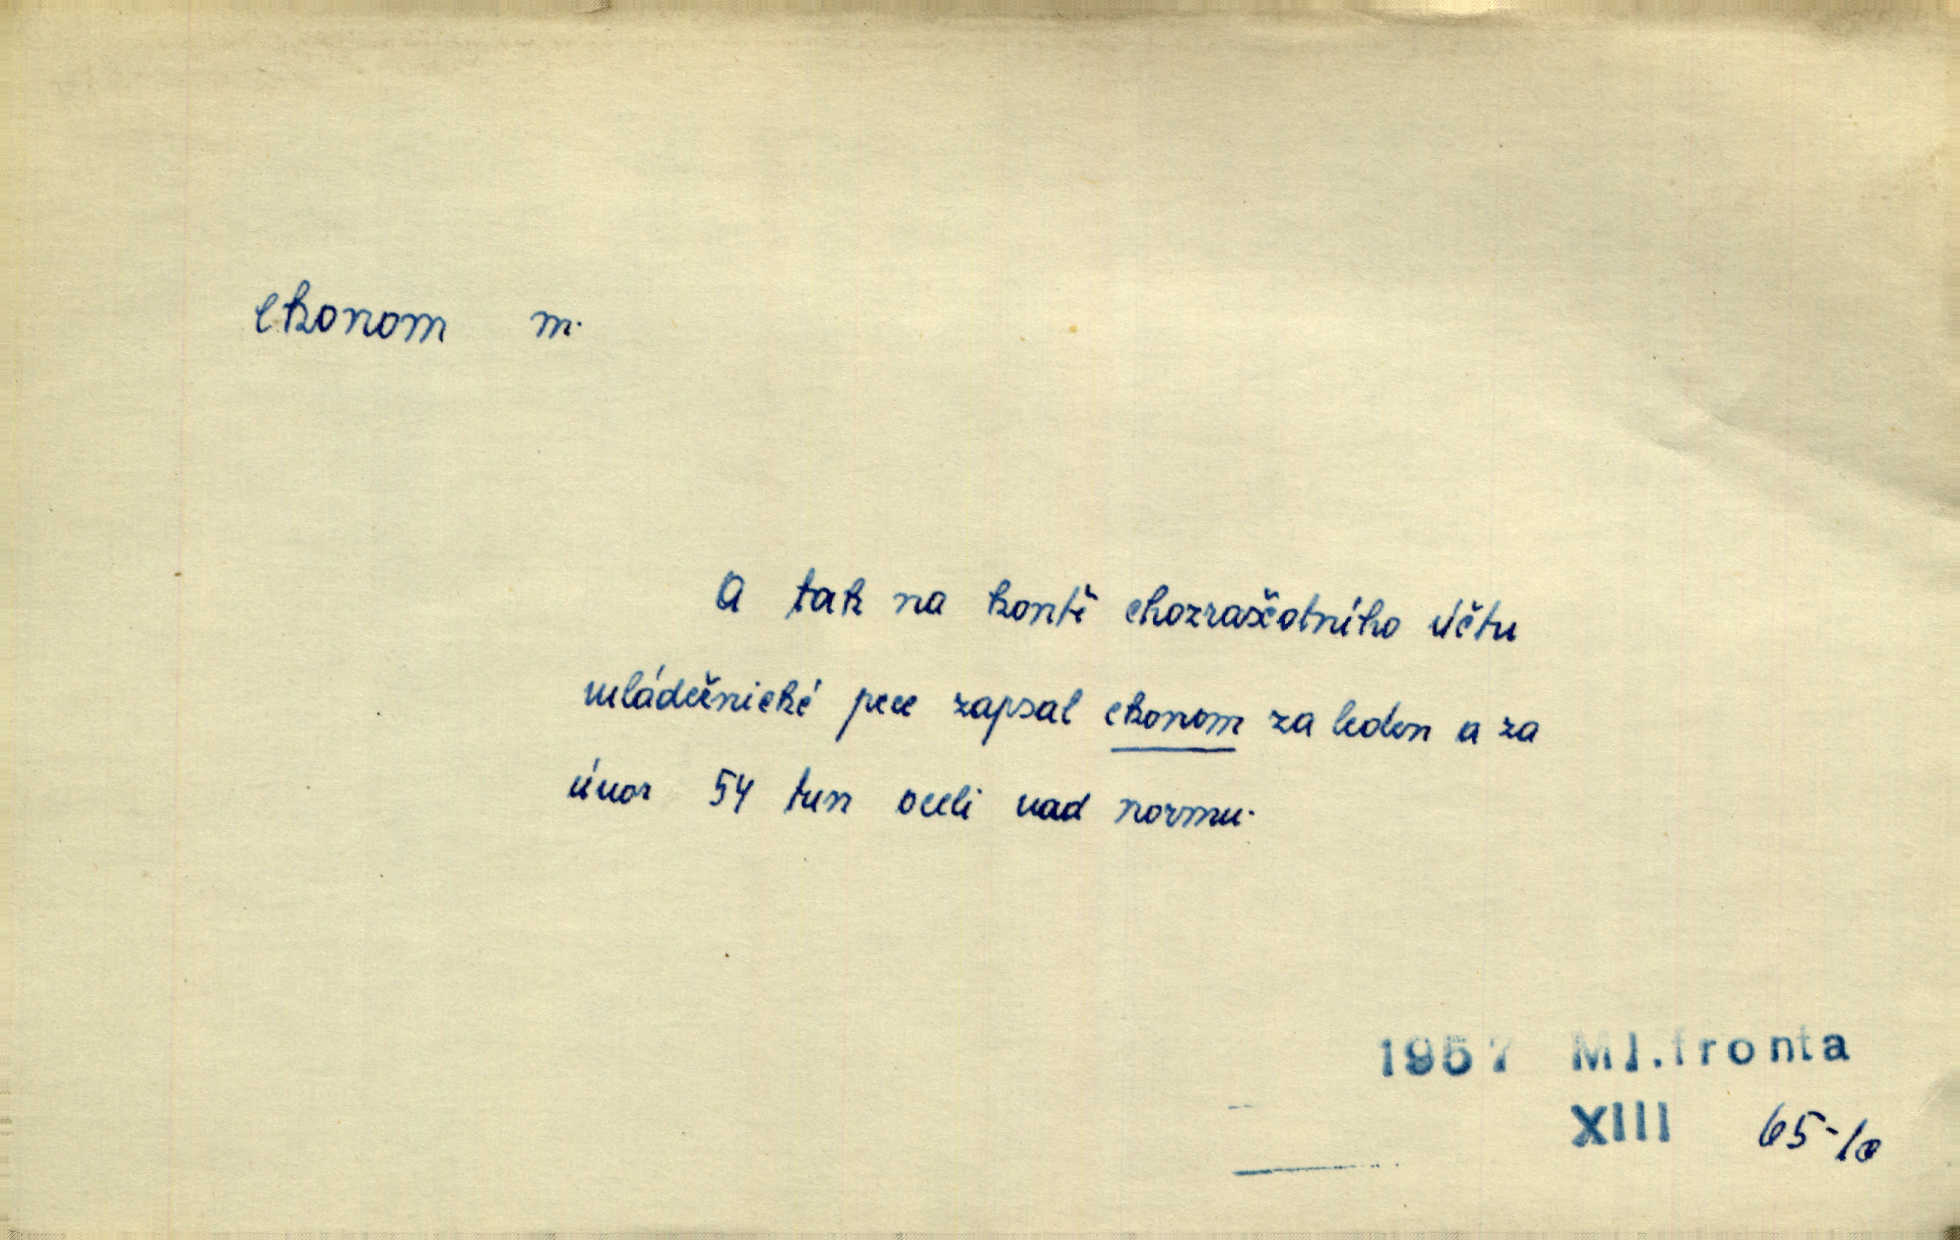 ekonom m.
A tak na kontě chozraščotního účtu
mládežnické pece zapsal ekonom za leden a za
únor 54 tun oceli nad normu.
1957 Ml.fronta
XIII 65-1c